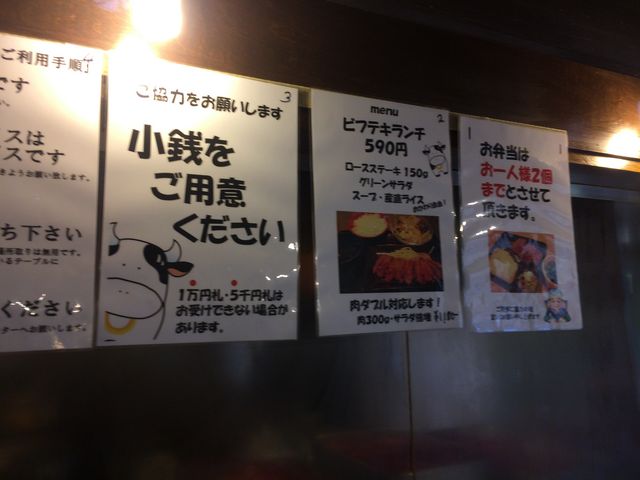 ご利用手順
です
スは
スです
きようお願い致します。
ち下さい
ください
ターへお願いします。
3
ご協力をお願いします
小銭を
ご用意
ください
1万円札・5千円札は
お受けできない場合が
あります。
2
menu
ビフテキランチ
590円
ロースステーキ 150g
グリーンサラダ
スープ・麦飯ライス
肉ダブル対応します!
肉300g・サラダ倍増
お弁当は
お一人様2個
までとさせて
頂きます。